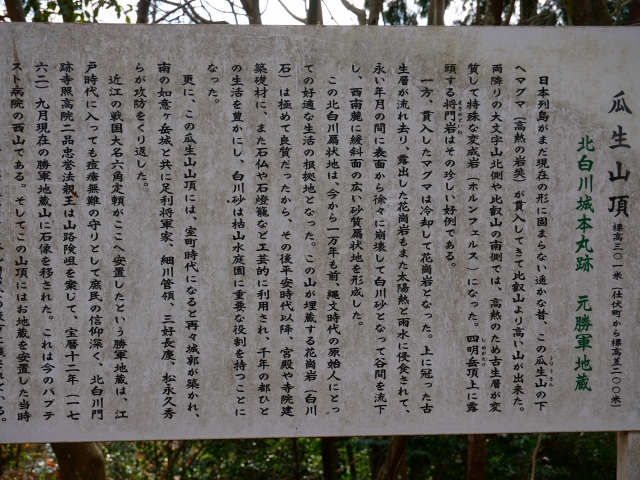 瓜生山頂 標高三〇一米（仕伏町から標高差二〇〇米）
北白川城本丸跡 元勝軍地蔵
日本列島がまだ現在の形に固まらない遥かな昔、この瓜生山の下
うりうさん
へマグマ（高熱の岩漿）が貫入してきて比叡山より高い山が出来た。
両隣りの大文字山北側や比叡山の南側では、高熱のため古生層が変
質して特殊な変成岩（ホルンフェルス）になった。四明岳頂上に露
しめいたけ
頭する将門岩はその珍しい好例である。
まさかどいわ
一方、貫入したマグマは冷却して花崗岩となった。上に冠った古
生層が流れ去り、露出した花崗岩もまた太陽熱と雨水に侵食されて、
永い年月の間に表面から徐々に崩壊して白川砂となって谷間を流下
し、西南麓に緩斜面の広い砂質扇状地を形成した。
この北白川扇状地は、今から一万年も前、縄文時代の原始人にとっ
ての好適な生活の根拠地となった。この山が埋蔵する花崗岩（白川
石）は極めて良質だったから、その後平安時代以降、宮殿や寺院建
築礎材に、また石仏や石燈籠など工芸的に利用され、千年の都びと
の生活を豊かにし、白川砂は枯山水庭園に重要な役割を持つことに
なった。
更に、この瓜生山山頂には、室町時代になると再々城郭が築かれ、
南の如意ヶ岳城と共に足利将軍家、細川管領、三好長慶、松永久秀
らが攻防をくり返した。
近江の戦国大名六角定頼がここへ安置したという勝軍地蔵は、江
戸時代に入っても痘瘡無難の守りとして庶民の信仰深く、北白川門
跡寺照高院二品忠誉法親王は山路険岨を案じて、宝暦十二年（一七
六二）九月現在の勝軍地蔵山に石像を移された。これは今のバプテ
スト病院の西山である。そしてこの山頂にはお地蔵を安置した当時